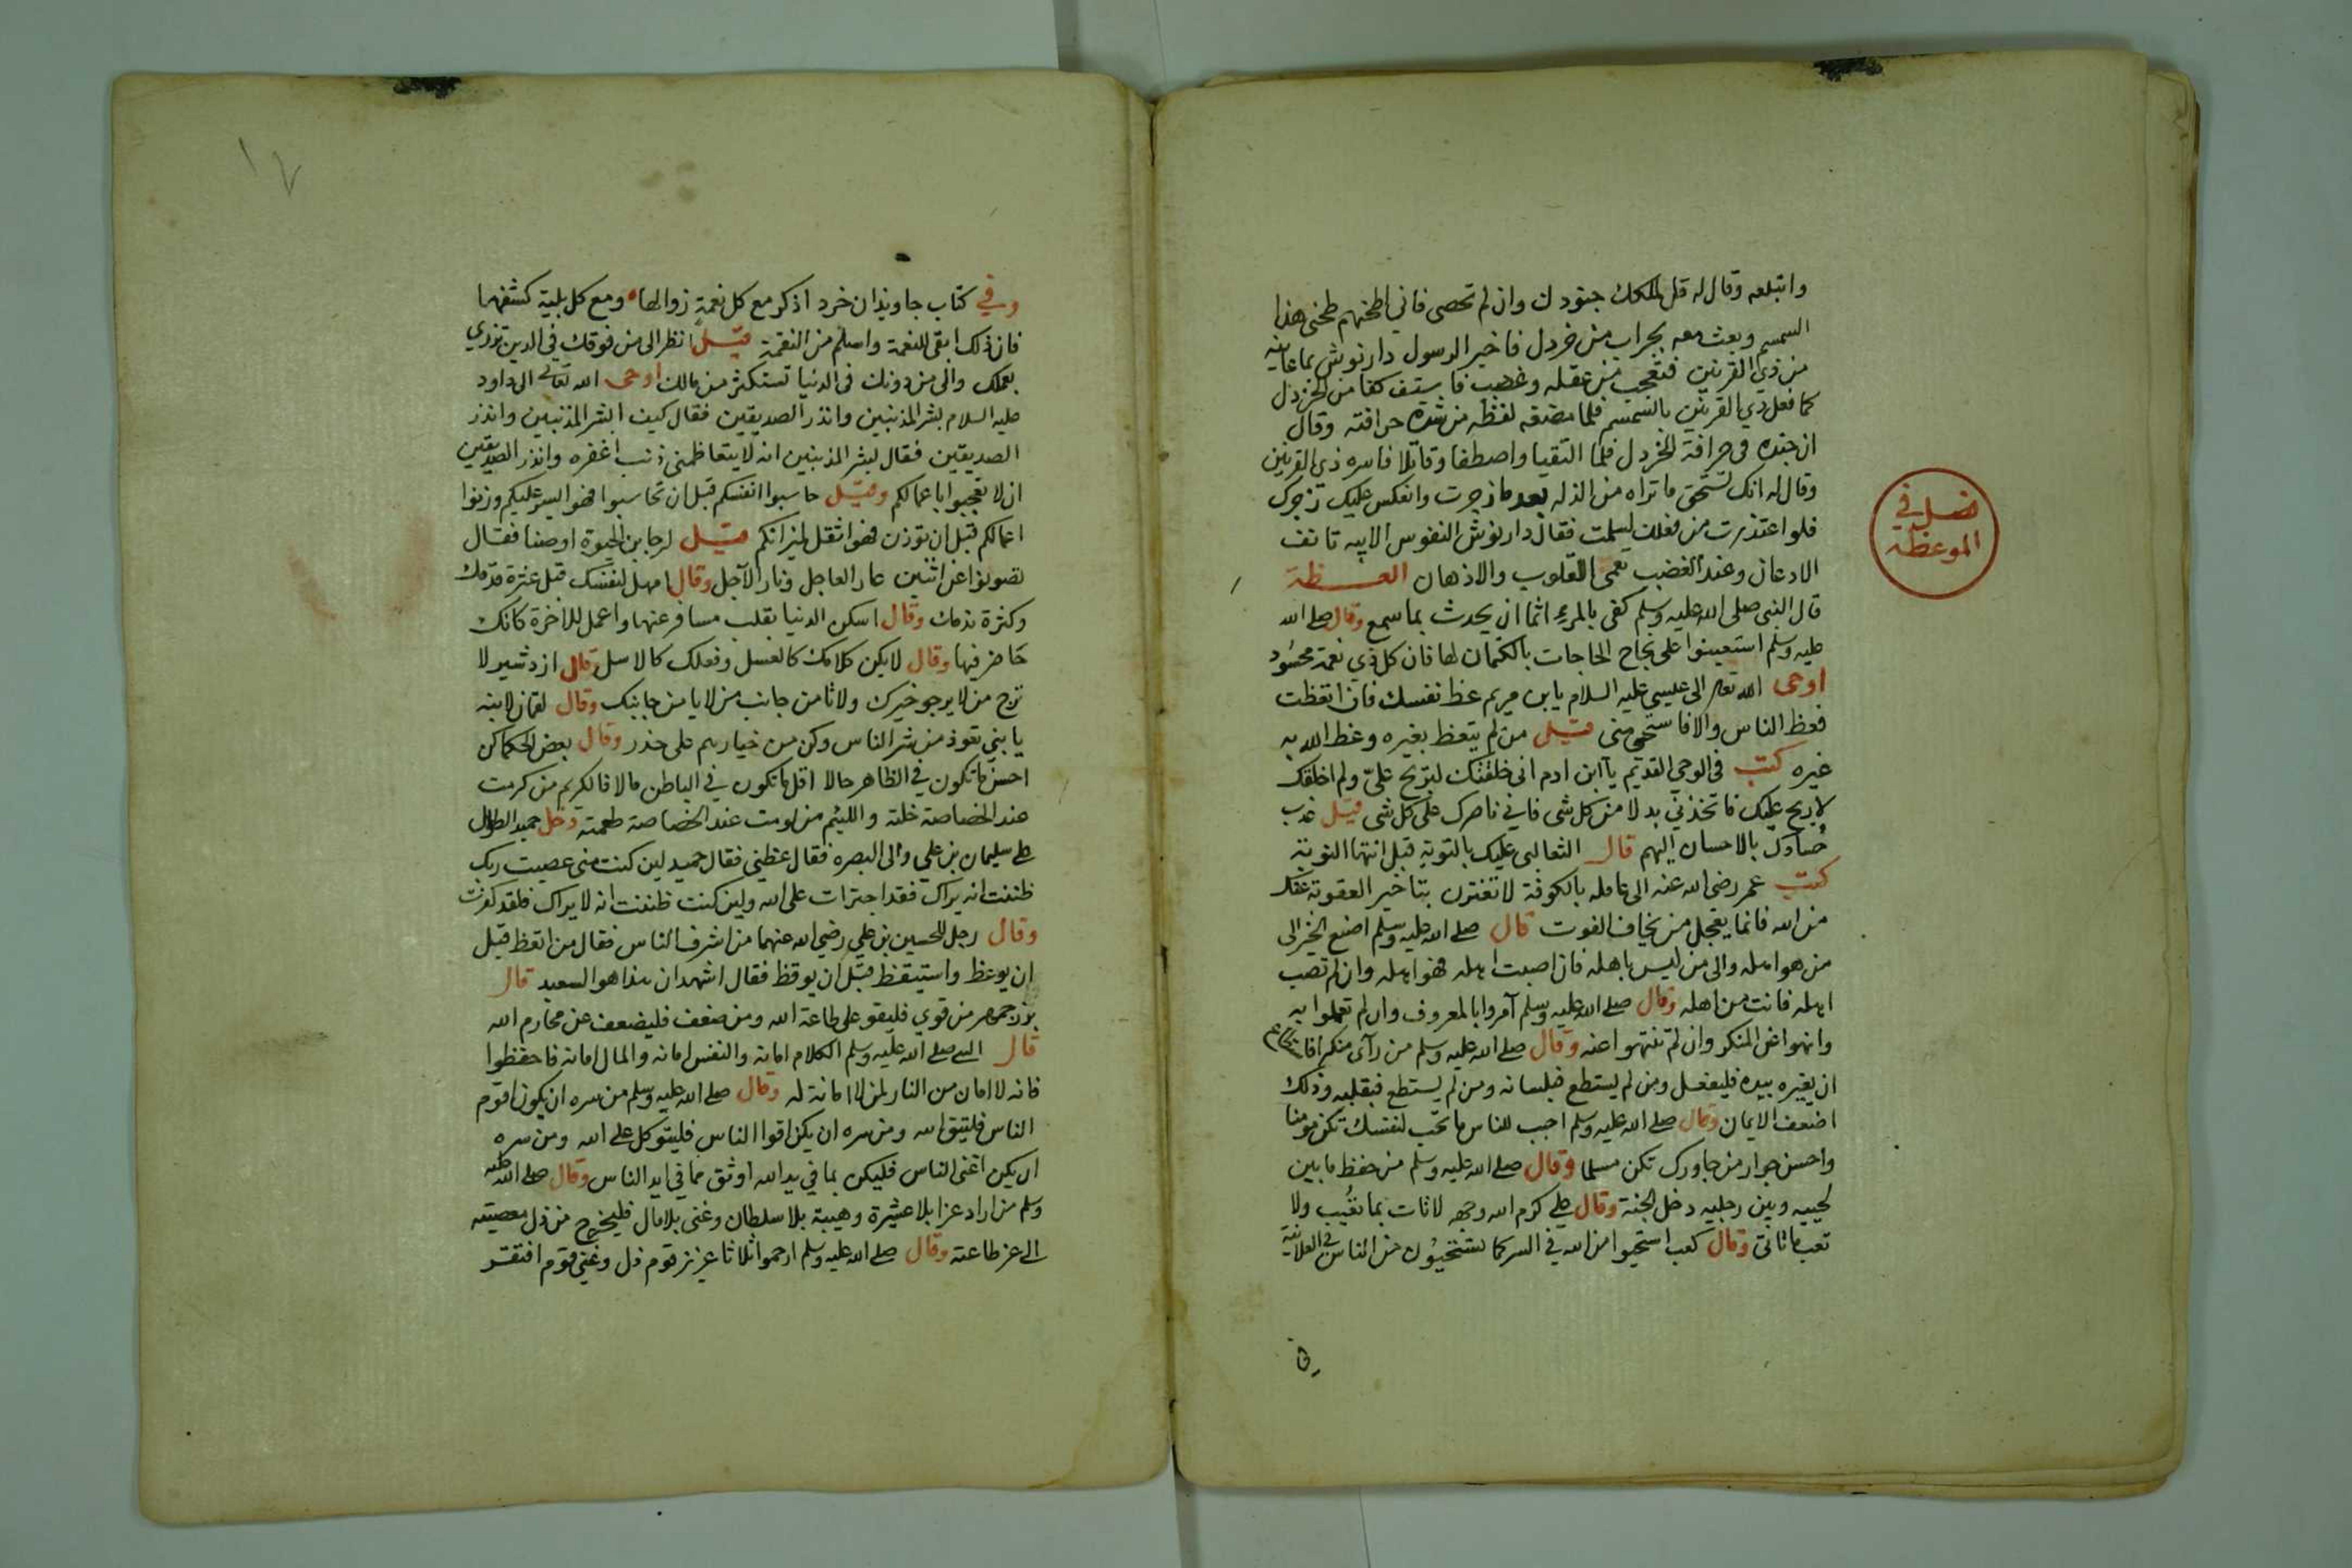 وابتلعه وقال له قل لملكك جنودك وان لم تحصى فاني اطحنهم طحنى هذا
السمسم وبعث معه بجراب من خردل فاخبر الرسول دارنوش بما عاينه
من ذي القرنين فتعجب من عقله وغضب فاستف كفا من الخردل
كما فعل ذي القرنين بالسمسم فلما مضغه لفظه من شدة حرافته وقال
ان جنده في حرافة الخردل فلما التقيا واصطفا وقاتلا فاسره ذي القرنين
وقال له انك تستحق ما تراه من الذله بعد ما زجرت وانعكس عليك زجرك
فلو اعتذرت من فعلك لسلمت فقال دارنوش النفوس الابيه تانف
الادعان وعند الغضب تعمى القلوب والاذهان العظة
فصل في
الموعظة
قال النبي صلى الله عليه وسلم كفى بالمرء اثما ان يحدث بما سمع وقال صلى الله
عليه وسلم استعينوا على نجاح الحاجات بالكتمان لها فان كل ذي نعمة محسود
اوحى الله تعالى الى عيسى عليه السلام يا بن مريم عظ نفسك فان اتعظت
فعظ الناس والا فاستحى منى قيل من لم يتعظ بغيره وعظ الله به
غيره كتب في الوحي القديم يا ابن ادم انى خلقتك لتربح علىّ ولم اخلقك
لاربح عليك فاتخذني بدلا من كل شى فاني ناصرك على كل شى قيل عذب
حسادك بالاحسان اليهم قال الثعالبى عليك بالتوبة قبل انتها النوبة
كتب عمر رضي الله عنه الى عامله بالكوفة لا تغترن بتاخير العقوبة عنك
من الله فانما يعجل من يخاف الفوت قال صلى الله عليه وسلم اصنع الخير الى
من هو اهله والى من ليس باهله فان اصبت اهله فهو اهله وان لم تصب
اهله فانت من اهله وقال صلى الله عليه وسلم آمروا بالمعروف وان لم تعملوا به
وانهوا عن المنكر وان لم تنتهوا عنه وقال صلى الله عليه وسلم من رآى منكرا
ان يغيره بيده فليفعل ومن لم يستطع فبلسانه ومن لم يستطع فبقلبه وذلك
اضعف الايمان وقال صلى الله عليه وسلم احبب للناس ما تحب لنفسك تكن مومنا
واحسن جوار من جاورك تكن مسلما وقال صلى الله عليه وسلم من حفظ ما بين
لحييه وبين رجليه دخل الجنة وقال على كرم الله وجهه لا تات بما تعُيب ولا
تعب ما تاتى وقال كعب استحيوا من الله في السر كما تستحيون من الناس في العلانية
وفي
وفي كتاب جاويذان خرد اذكر مع كل نعمة زوالها ومع كل بلية كشفها
فان ذلك ابقى للنعمة واسلم من النقمة قيل انظر الى من فوقك في الدين تزدري
بعملك والى من دونك في الدنيا تستكثر من مالك اوحى الله تعالى الى داود
عليه السلام بشر المذنبين وانذر الصديقين فقال كيف ابشر المذنبين وانذر
الصديقين فقال بشر المذنبين انه لا يتعاظمني ذنب اغفره وانذر الصديقين
ان لا يعجبوا باعمالكم وقيل حاسبوا انفسكم قبل ان تحاسبوا فهو ايسر عليكم وزنوا
اعمالكم قبل ان توزن فهو اثقل لميزانكم قيل لرجا بن الحيوة اوصنا فقال
تصونوا عن اثنين عار العاجل ونار الآجل وقال امهل لنفسك قبل عثرة قدمك
وكثرة ندمك وقال اسكن الدنيا بقلب مسافر عنها واعمل للاخرة كانك
حاضر فيها وقال لا يكن كلامك كالعسل وفعلك كالاسل وقال ازدشير لا
ترج من لا يرجو خيرك ولا تامن جانب من لا يامن جانبك وقال لقمان لابنه
يا بني تعوذ من شر الناس وكن من خيارهم على حذر وقال بعض الحكما كن
احسن ما تكون في الظاهر حالا اقل ما تكون في الباطن مالا فالكريم من كرمت
عند الخصاصة خلته واللئيم من لومت عند الخصاصة طعمته دخل حميد الطوال
على سليمان بن علي والى البصره فقال عظني فقال حميد لين كنت متى عصيت ربك
ظننت انه يراك فقد اجترات على الله ولين كنت ظننت انه لا يراك فلقد كفرت
وقال رجل للحسين بن علي رضي الله عنهما من اشرف الناس فقال من اتعظ قبل
ان يوعظ واستيقظ قبل ان يوقظ فقال اشهد ان هذا هو السعيد قال
بوزجمهر من قوي فليقو على طاعة الله ومن ضعف فليضعف عن محارم الله
قال النبي صلى الله عليه وسلم الكلام امانة والنفس امانه والمال امانه فاحفظوا
فانه لا امان من النار لمن لا امانة له وقال صلى الله عليه وسلم من سره ان يكون اقوم
الناس فليتق الله ومن سره ان يكن اقوا الناس فليتوكل على الله ومن سره
ان يكن اغنى الناس فليكن بما في يد الله اوثق مما في ايد الناس وقال صلى الله عليه
وسلم من اراد عزا بلا عشيرة وهيبة بلا سلطان وغنى بلا مال فليخرج من ذل معصيته
الى عز طاعته وقال صلى الله عليه وسلم ارحموا ثلاثا عزيز قوم ذل وغني قوم افتقر